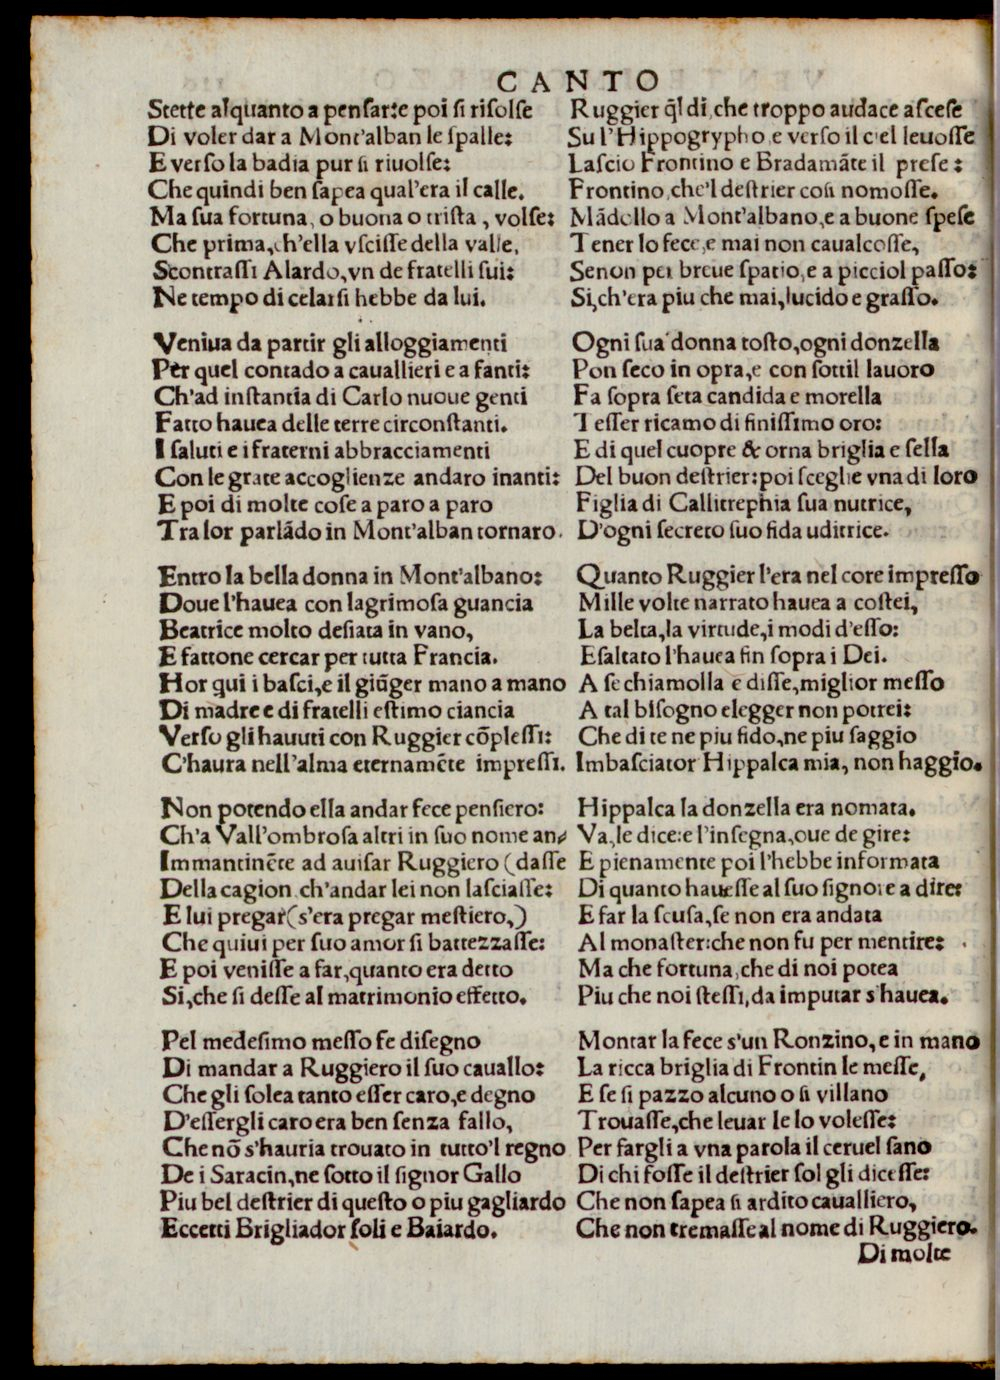 CANTO
Stette alquanto a pensar:e poi si risolse
Di voler dar a Mont'alban le spalle:
E verso la badia pur si riuolse:
Che quindi ben sapea qual'era il calle.
Ma sua fortuna, o buona o trista, volse:
Che prima,ch'ella vscisse della valle,
Scontrassi Alardo,vn de fratelli sui:
Ne tempo di celarsi hebbe da lui.
Veniua da partir gli alloggiamenti
Per quel contado a cauallieri e a fanti:
Ch'ad instantia di Carlo nuoue genti
Fatto hauea delle terre circonstanti.
I saluti e i fraterni abbracciamenti
Con le grate accoglienze andaro inanti:
E poi di molte cose a paro a paro
Tra lor parlādo in Mont'alban tornaro.
Entro la bella donna in Mont'albano:
Doue l'hauea con lagrimosa guancia
Beatrice molto desiata in vano,
E fattone cercar per tutta Francia.
Hor qui i basci,e il giūger mano a mano
Di madre e di fratelli estimo ciancia
Verso gli hauuti con Ruggier cōplessi:
C'haura nell'alma eternamēte impressi.
Non potendo ella andar fece pensiero:
Ch'a Vall'ombrosa altri in suo nome an⸗
Immantinēte ad auisar Ruggiero (dasse
Della cagion ch'andar lei non lasciasse:
E lui pregar(s'era pregar mestiero,)
Che quiui per suo amor si battezzasse:
E poi venisse a far,quanto era detto
Si,che si desse al matrimonio effetto.
Pel medesimo messo fe disegno
Di mandar a Ruggiero il suo cauallo:
Che gli solea tanto esser caro,e degno
D'essergli caro era ben senza fallo,
Che nō s'hauria trouato in tutto'l regno
De i Saracin,ne sotto il signor Gallo
Piu bel destrier di questo o piu gagliardo
Eccetti Brigliador soli e Baiardo.
Ruggier q̄l dì,che troppo audace ascese
Su l'Hippogrypho e verso il ciel leuosse
Lascio Frontino e Bradamāte il prese:
Frontino,che'l destrier cosi nomosse.
Mādollo a Mont'albano,e a buone spese
Tener lo fece,e mai non caualcosse,
Se non per breue spatio,e a picciol passo:
Si,ch'era piu che mai,lucido e grasso.
Ogni sua donna tosto,ogni donzella
Pon seco in opra,e con sottil lauoro
Fa sopra seta candida e morella
Tesser ricamo di finissimo oro:
E di quel cuopre & orna briglia e sella
Del buon destrier:poi sceglie vna di loro
Figlia di Callitrephia sua nutrice,
D'ogni secreto suo fida uditrice.
Quanto Ruggier l'era nel core impresso
Mille volte narrato hauea a costei,
La belta,la virtude,i modi d'esso:
Esaltato l'hauea fin sopra i Dei.
A se chiamolla e disse,miglior messo
A tal bisogno elegger non potrei:
Che di te ne piu fido,ne piu saggio
Imbasciator Hippalca mia, non haggio.
Hippalca la donzella era nomata.
Va,le dice:e l'insegna,oue de gire:
E pienamente poi l'hebbe informata
Di quanto hauesse al suo signore a dire:
E far la scusa,se non era andata
Al monaster:che non fu per mentire:
Ma che fortuna,che di noi potea
Piu che noi stessi,da imputar s'hauea.
Montar la fece s'un Ronzino,e in mano
La ricca briglia di Frontin le messe,
E se si pazzo alcuno o si villano
Trouasse,che leuar le lo volesse:
Per fargli a vna parola il ceruel sano
Di chi fosse il destrier sol gli dicesse:
Che non sapea si ardito caualliero,
Che non tremasse al nome di Ruggiero.
Di molte